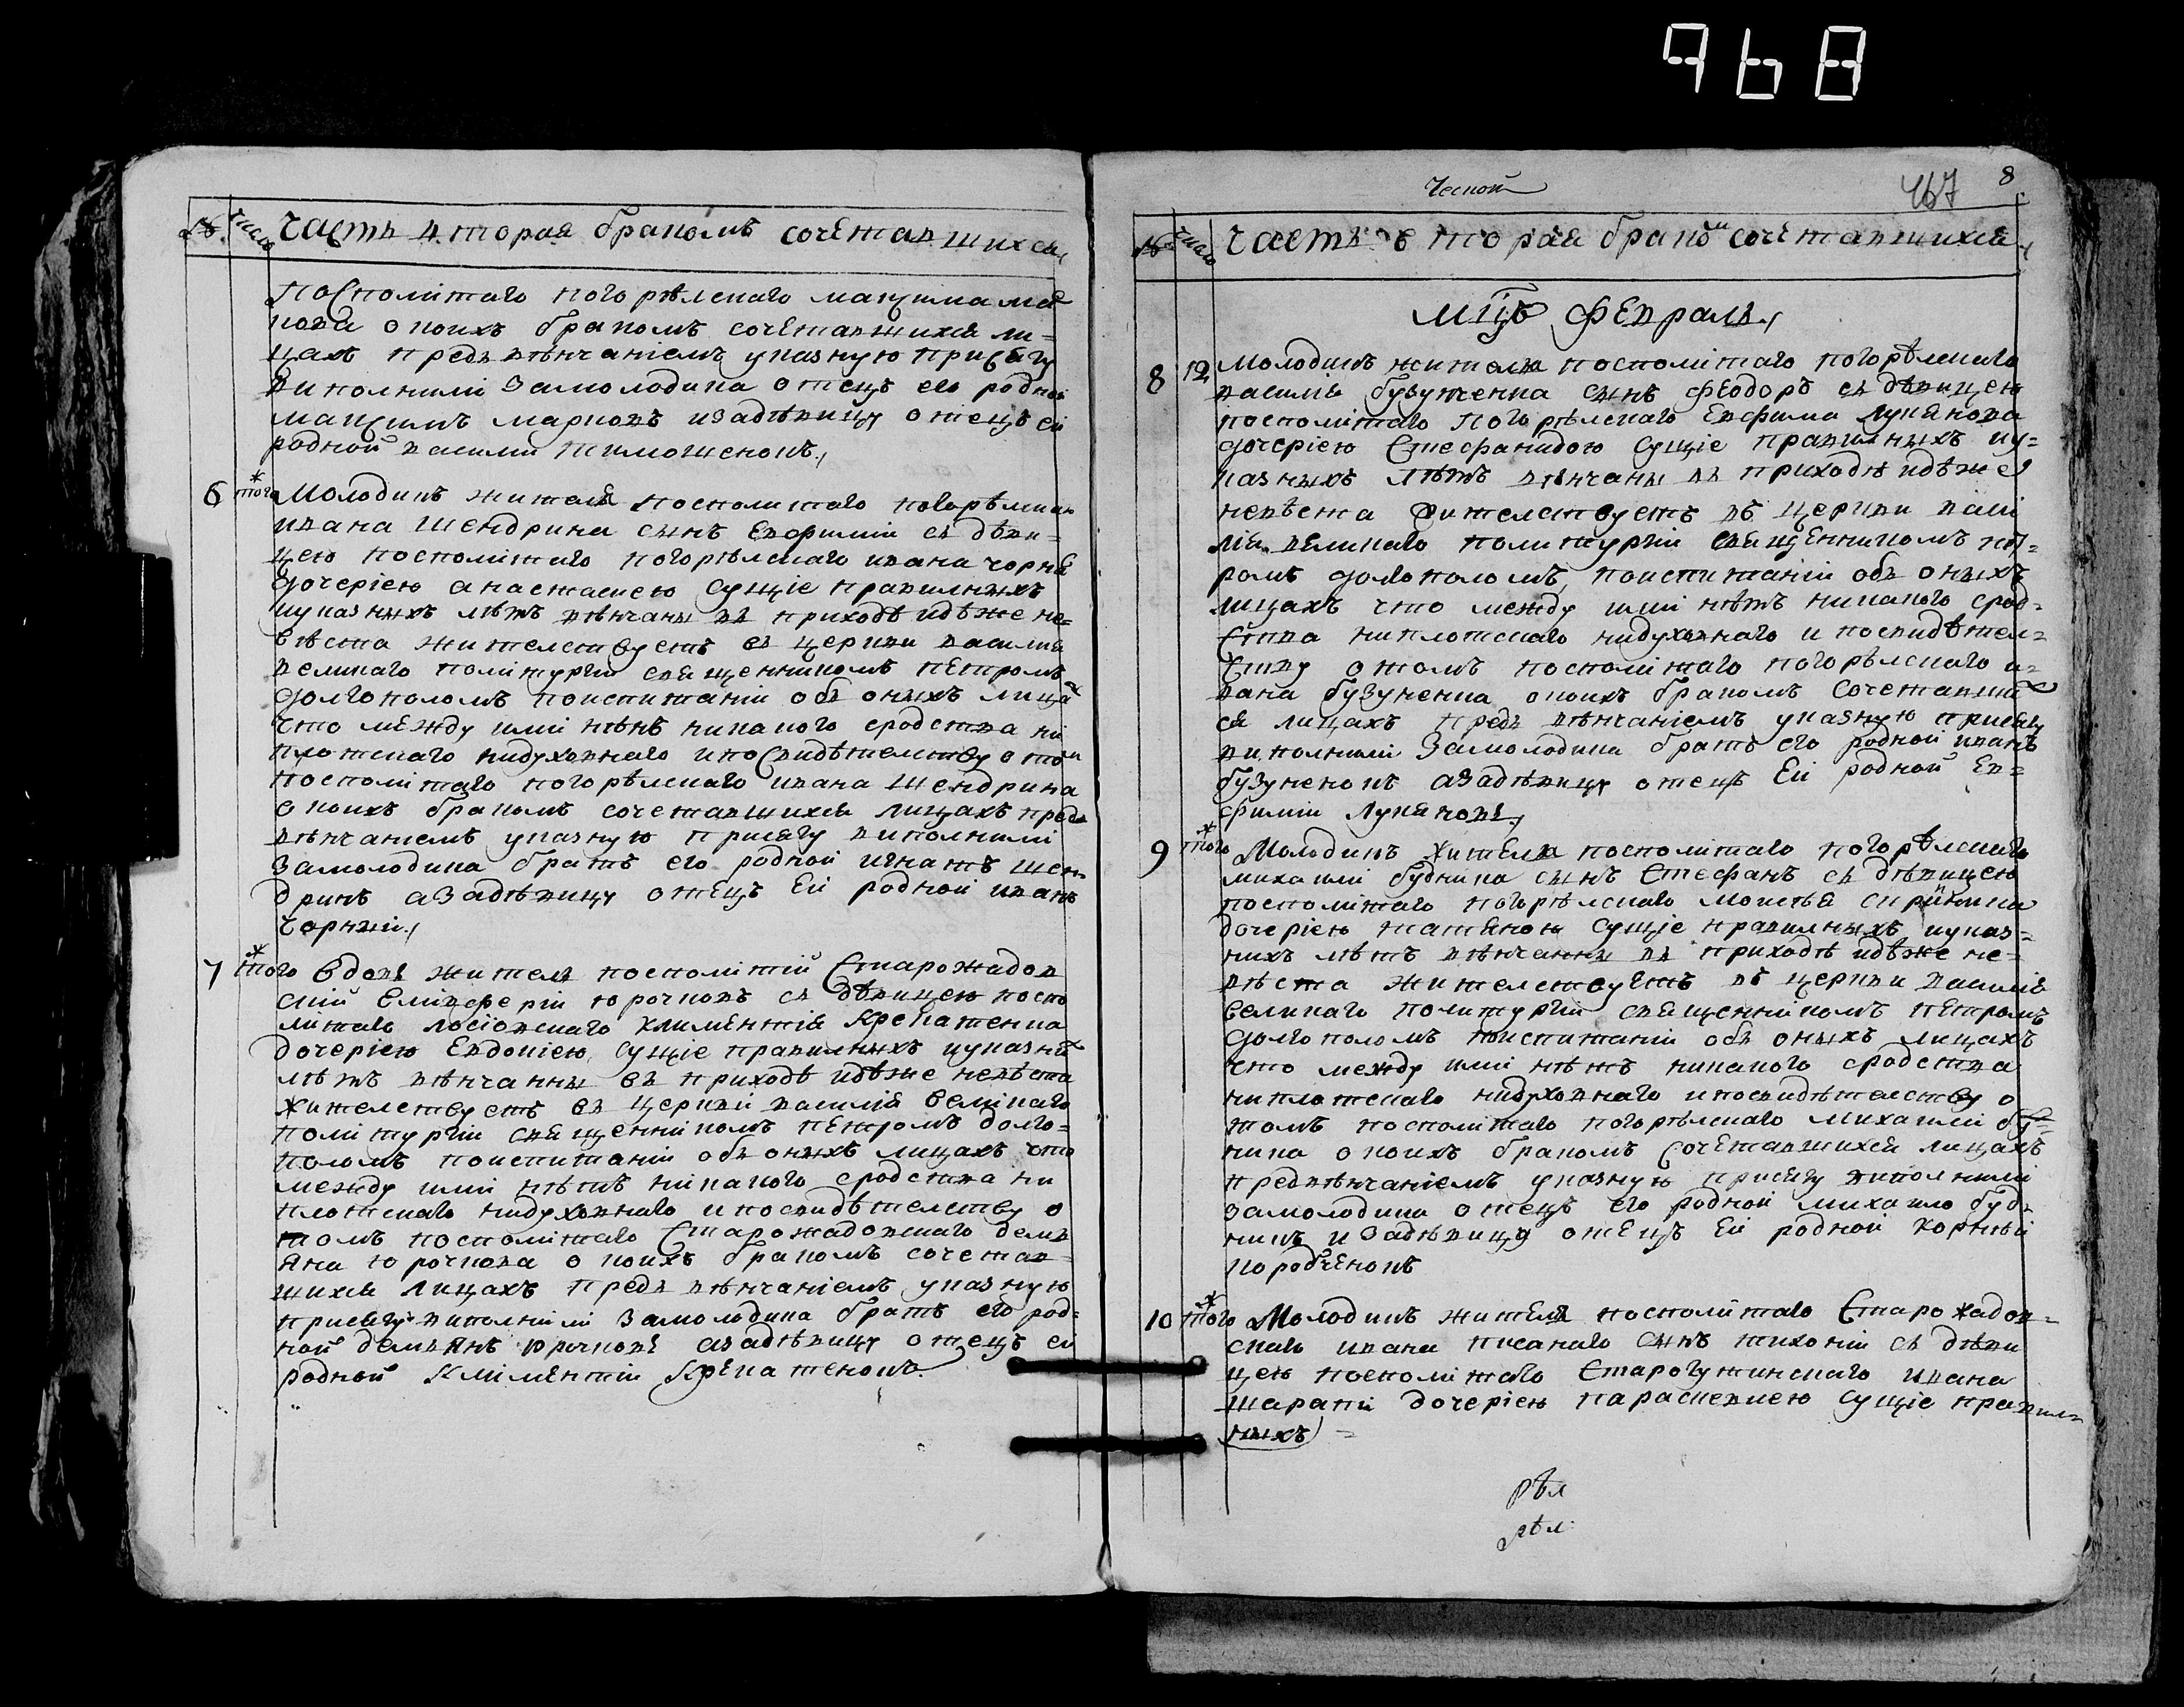 968
№ число Часть вторая бракомъ сочетавшихся,
посполитаго погорѣлскаго максима ма
кова о коихъ бракомъ сочетавшихся ли=
цахъ предъ вѣнчаніемъ указную присягу
виполнили замолодика отецъ его родной
максимъ марковъ изадѣвицу отецъ еи
родной василій тимошенокъ,
6 того Молодикъ жителя посполитаго погорѣлскаго
ивана Шендрика сынъ Евфимій съ дѣви=
цею посполітаго погорѣлскаго ивана чорна
дочеріею анастасіею сущіе правилныхъ
иуказныхъ лѣтъ вѣнчаны въ приходѣ идѣже не=
вѣста жителствуетъ въ церкви василія
великаго политургіи священникомъ петромъ
долгополомъ поиспитаніи объ оныхъ лица
что между ими нѣтъ никакого сродства ни
плотскаго нидуховнаго ипосвидѣтелству о том
посполітаго погорѣлскаго ивана Шендрика
о коихъ бракомъ сочетавшихся лицахъ предъ
вѣнчаніемъ указную присягу виполнили
замолодика братъ его родной игнатъ шен
дрикъ азадѣвицу отецъ Еи родной иванъ
чорный,
7 того Вдовъ житель посполітій Старожадов
скій Елівферій юрочковъ съ дѣвицею поспо
літаго лосіовскаго климентія Крепатенка
дочеріею Евдокіею, сущіе правилныхъ иуказны
лѣтъ вѣнчанны въ приходѣ идѣже невѣста
жителствуетъ въ церквѣ василія великаго
політургіи священнікомъ петромъ долго=
поломъ поиспитаніи объ оныхъ лицахъ что
между ими нѣтъ нікакого сродства ни
плотскаго нидуховнаго ипосвидѣтелству о
томъ посполітаго Старожадовскаго демъ
яна юрочкова о коихъ бракомъ сочетав=
шихся лицахъ предъ вѣнчаніемъ указную
присягу виполнили замолодика братъ его род=
ной демъянъ юрочковъ азадѣвицу отецъ еи
родной Кліментій Крепатенокъ.
Ческой
467 8
№ число Часть вторая брако сочетавшихся,
мцъ февраль,
8 12 Молодикъ жителя посполітаго погорѣлскаго
василія бузуненка сынъ феодоръ съ дѣвицею
посполітаго погорѣлскаго Евфима лукянова
дочеріею Стефанидою сущіе правилныхъ иу=
казныхъ лѣтъ вѣнчаны въ приходѣ идѣже
невѣста жителствуетъ въ церкви васи
лія великаго политургіи священникомъ пет=
ромъ долгополомъ, поиспитаніи объ оныхъ
лицахъ что между ими нѣтъ никакого срод=
ства ниплотскаго нидуховнаго и посвидѣтел=
ству отомъ посполітаго погорѣлскаго и=
вана бузуненка окоихъ бракомъ сочетавших
ся лицахъ предъ вѣнчаніемъ указную присягу
виполнили замолодика братъ его родной иванъ
бузуненокъ азадѣвицу отецъ Еи родной Ев=
фимій Лукяновъ,
9 того Молодикъ жителя посполітаго погорѣлскаго
михаили будника сынъ Стефанъ съ дѣвицею
посполітаго погорѣлскаго Моисѣя
дочеріею татяною сущіе правилныхъ иуказ=
нихъ лѣтъ вѣнчанны въ приходѣ идѣже не=
вѣста жителствуетъ въ церкви василія
великаго политургіи священнікомъ петромъ
долгополомъ поиспитаніи объ оныхъ лицахъ
что между ими нѣтъ никакого сродства
ниплотскаго нидуховнаго ипосвидѣтелству о
томъ посполітаго погорѣлскаго михаили бу=
ника о коихъ бракомъ сочетавшихся лицахъ
предвѣнчаніемъ указную присягу виполнили
замолодика отецъ его родной михаило буд=
никъ изадѣвицу отецъ Еи родной корній
породченокъ
10 того Молодикъ жителя посполітаго Старожадов=
скаго ивана писанаго сынъ тихоній съ дѣви
цею посполітаго Старогутинскаго ивана
шарапи дочеріею параскевіею сущіе правил=
ныхъ =
рѣл
рѣл